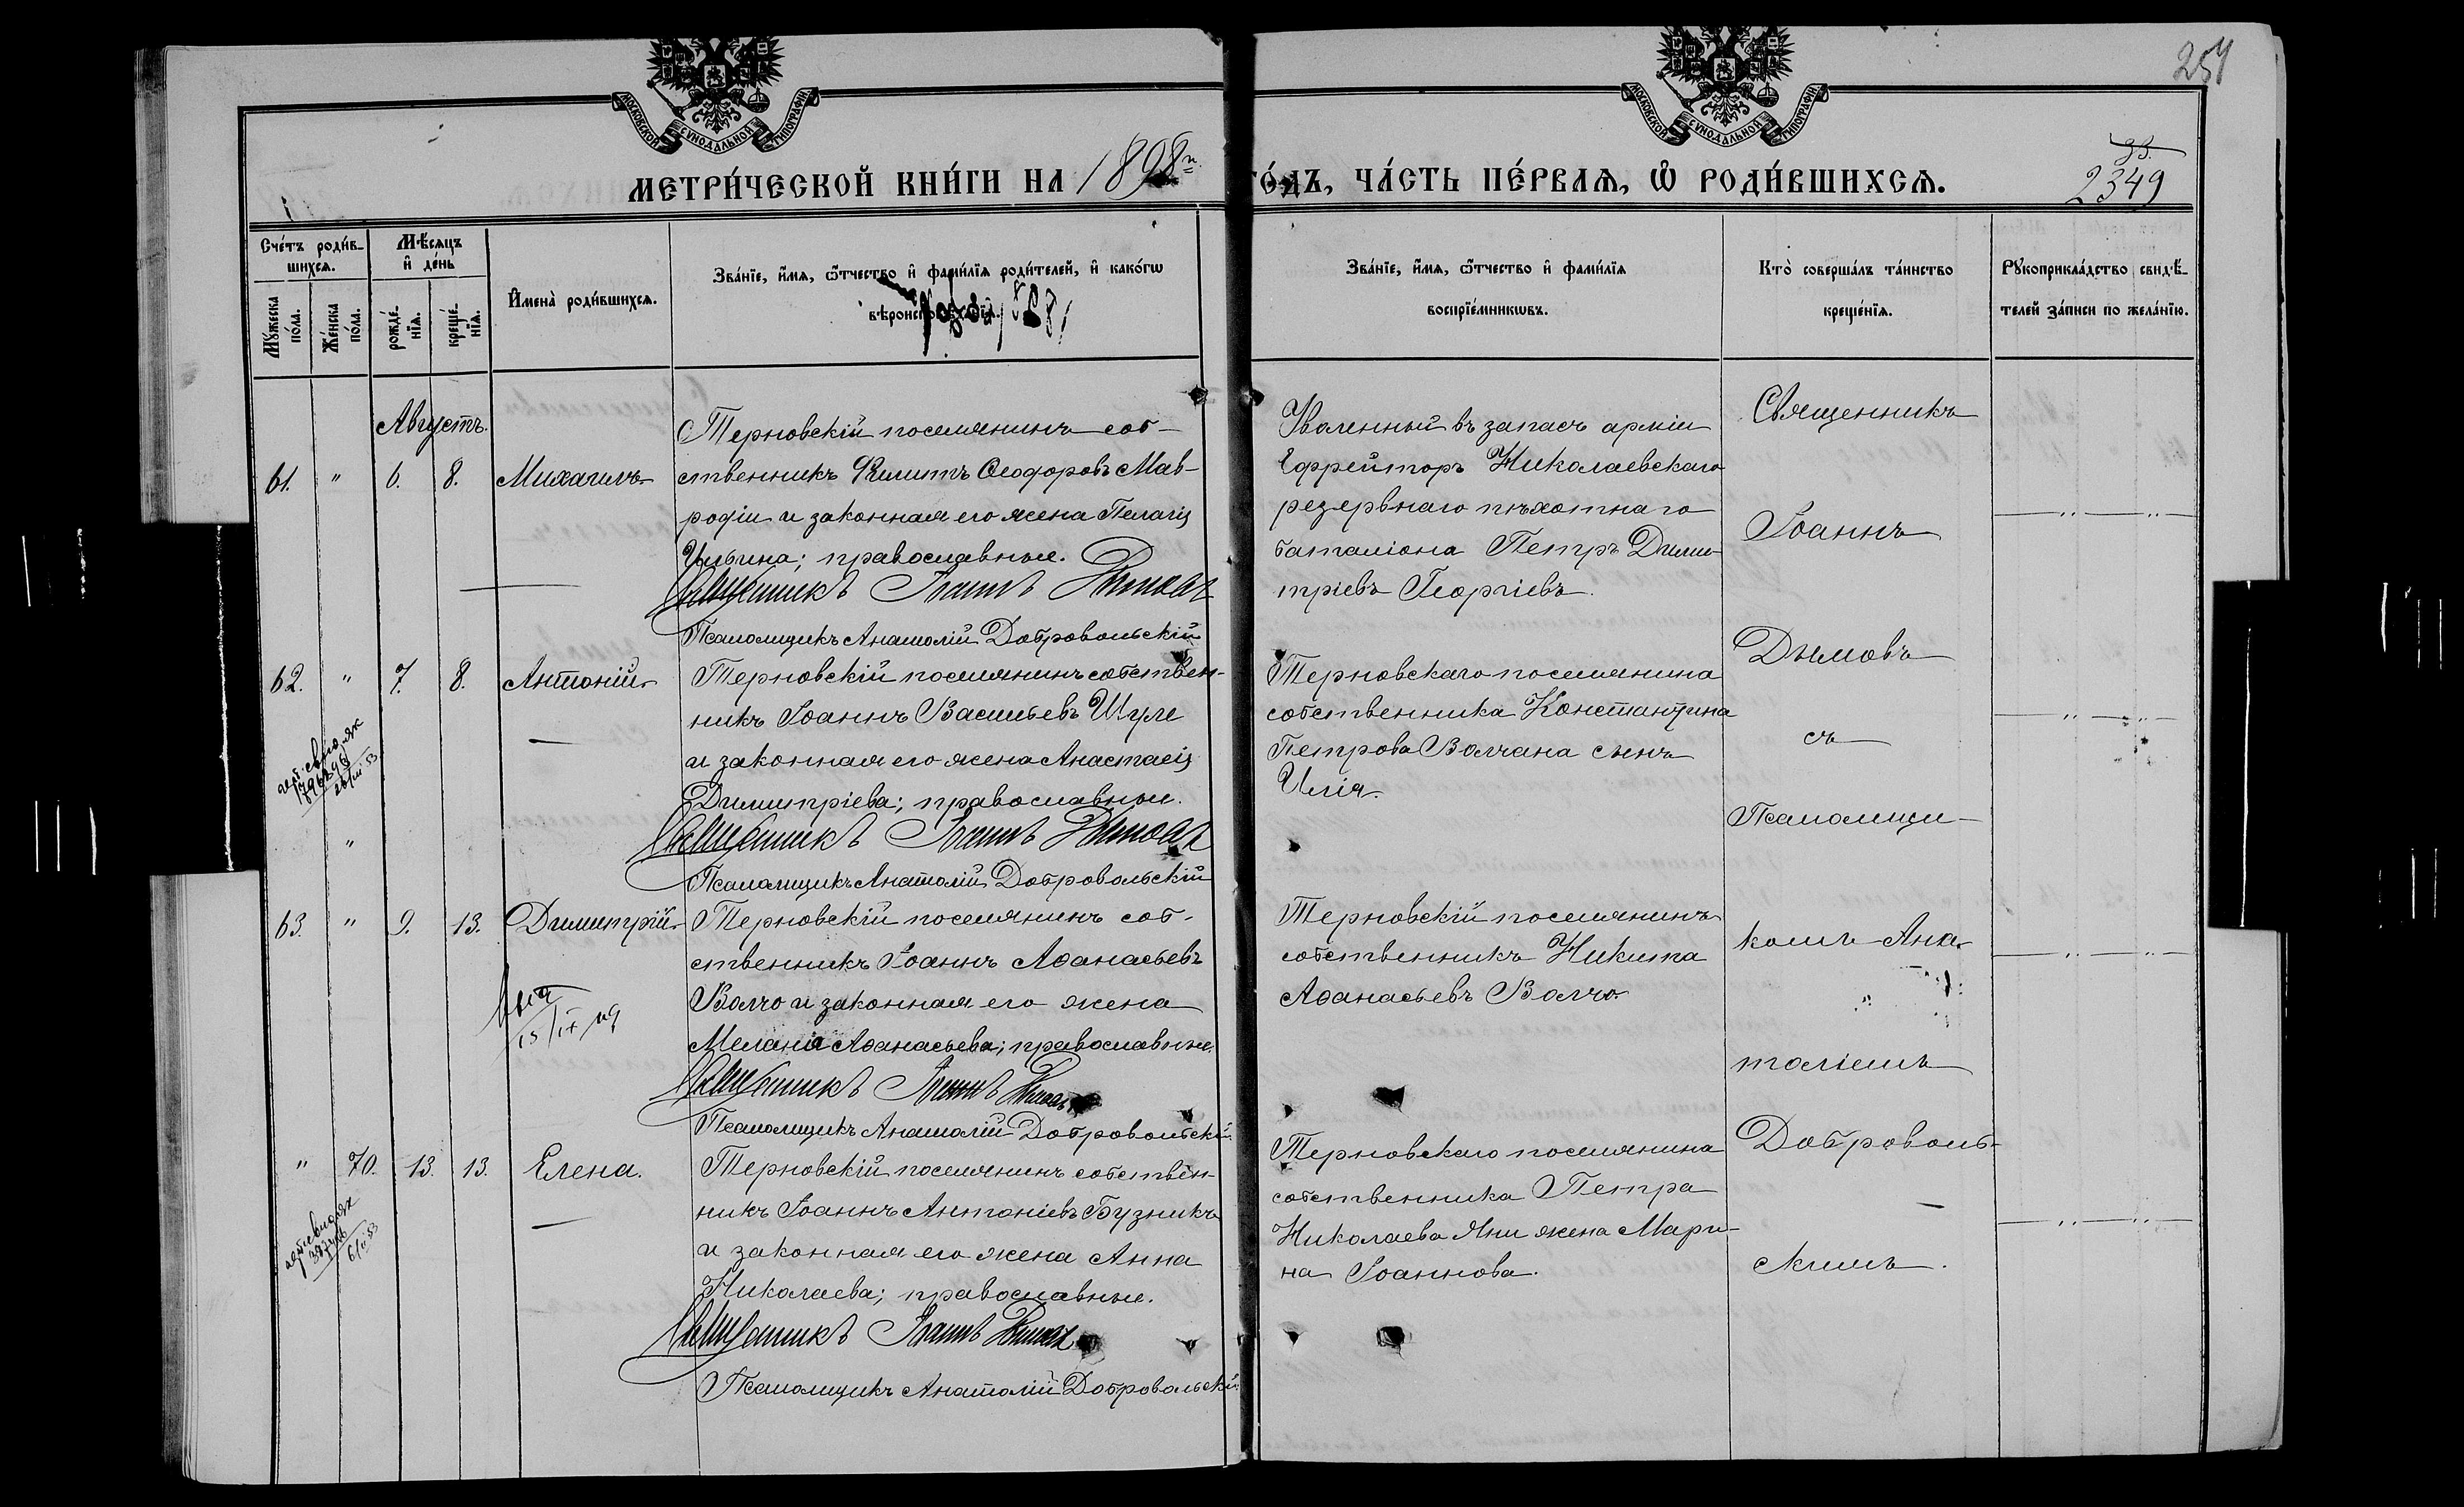 МОСКОВСКОЙ СѴНОДАЛЬНОЙ ТИПОГРАФІИ
МОСКОВСКОЙ СѴНОДАЛЬНОЙ ТИПОГРАФІИ
254
МЕТРИ́ЧЕСКОЙ КНИ́ГИ НА 1898 го́дъ, ЧА́СТЬ ПЕ́РВАѦ, Ѡ҆ РОДИ́ВШИХСѦ.
2349
Сче́тъ роди́в-
шихсѧ.
Мꙋ́жеска по́ла.
Же́нска по́ла.
Мѣ́сѧцъ
и҆ де́нь
рожде́-
нїѧ.
креще́-
нїѧ.
И҆мена̀ роди́вшихсѧ.
Зва́нїе, и҆́мѧ, ѻ҆́тчество и҆ фами́лїѧ роди́телей, и҆ како́гѡ
вѣроисповѣданїѧ.
Зва́нїе, и҆́мѧ, ѻ҆́тчество и҆ фами́лїѧ
воспрїе́мникѡвъ.
Кто̀ соверша́лъ та́инство
креще́нїѧ.
Рꙋкоприкла́дство свидѣ́-
телей за́писи по жела́нїю.
Августъ.
61. " 6. 8. Михаилъ
Терновскій поселянинъ соб-
ственникъ Филиппъ Ѳеодоровъ Мав-
родіи и законная его жена Пелагія
Ильина; православные.
Священникъ Іоаннъ Дымовъ
Псаломщикъ Анатолій Добровольскій
Уволенный въ запасъ арміи
Ефрейторъ Николаевскаго
резервнаго пѣхотнаго
баталіона Петръ Дими-
тріевъ Георгіевъ.
62. " 7. 8. Антоній
Терновскій поселянинъ собствен-
никъ Іоаннъ Васильевъ Шуле
и законная его жена Анастасія
Димитріева; православные.
Священникъ Іоаннъ Дымовъ
Псаломщикъ Анатолій Добровольскій
Терновскаго поселянина
собственника Константина
Петрова Волчана сынъ
Илія.
63. " 9. 13. Димитрій
Терновскій поселянинъ соб-
ственникъ Іоаннъ Аѳанасьевъ
Волчо и законная его жена
Меланія Аѳанасьева; православные.
Священникъ Іоаннъ Дымовъ
Псаломщикъ Анатолій Добровольскій
Терновскій поселянинъ
собственникъ Никита
Аѳанасьевъ Волчо.
" 70. 13. 13. Елена.
Терновскій поселянинъ собствен-
никъ Іоаннъ Антоніевъ Бузникъ
и законная его жена Анна
Николаева; православные.
Священникъ Іоаннъ Дымовъ
Псаломщикъ Анатолій Добровольскій
Терновскаго поселянина
собственника Петра
Николаева Яни жена Мари-
на Іоаннова.
Священникъ
Іоаннъ
Дымовъ
съ
Псаломщи-
комъ Ана-
толіемъ
Доброволь-
скимъ.